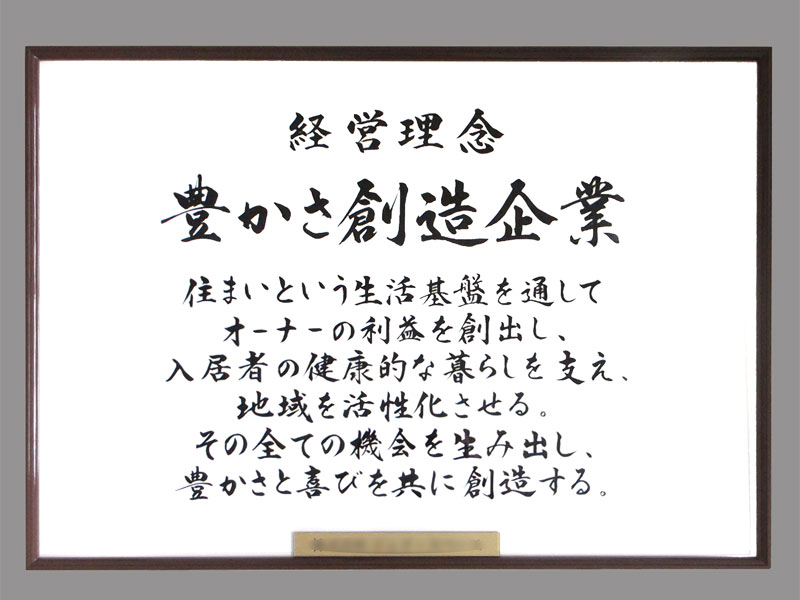 経営理念
豊かさ創造企業
住まいという生活基盤を通して
オーナーの利益を創出し、
入居者の健康的な暮らしを支え、
地域を活性化させる。
その全ての機会を生み出し、
豊かさと喜びを共に創造する。